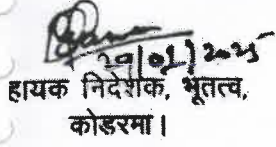 20/01/2025
हायक निदेशक, भूतत्व,
कोडरमा।